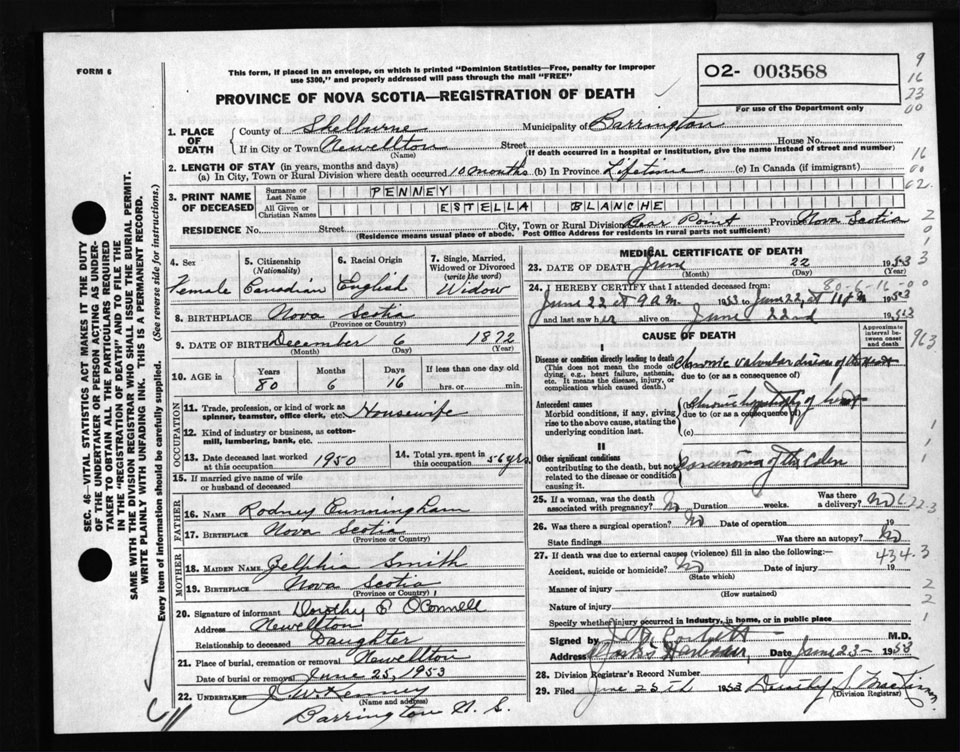 FORM 6
This form, if placed in an envelope, on which is printed "Dominion Statistics—Free, penalty for improper
use $300," and properly addressed will pass through the mail "FREE"
PROVINCE OF NOVA SCOTIA—REGISTRATION OF DEATH
O2- 003568
For use of the Department only
9
16
23
00
1. PLACE OF DEATH
County of Shelburne Municipality of Barrington
If in City or Town Newellton Street House No.
(Name) (If death occurred in a hospital or institution, give the name instead of street and number)
2. LENGTH OF STAY (in years, months and days)
(a) In City, Town or Rural Division where death occurred 10 months (b) In Province Lifetime (c) In Canada (if immigrant)
16
00
62
3. PRINT NAME OF DECEASED
Surname or Last Name PENNEY
All Given or Christian Names ESTELLA BLANCHE
RESIDENCE No. Street City, Town or Rural Division Bear Point Province Nova Scotia
(Residence means usual place of abode. Post Office Address for residents in rural parts not sufficient)
4. Sex Female
5. Citizenship (Nationality) Canadian
6. Racial Origin English
7. Single, Married, Widowed or Divorced (write the word) Widow
8. BIRTHPLACE Nova Scotia
(Province or Country)
9. DATE OF BIRTH December 6 1872
(Month) (Day) (Year)
10. AGE in Years Months Days If less than one day old
80 6 16 hrs. or min.
OCCUPATION
11. Trade, profession, or kind of work as spinner, teamster, office clerk, etc. Housewife
12. Kind of industry or business, as cotton-mill, lumbering, bank, etc.
13. Date deceased last worked at this occupation 1950
14. Total yrs. spent in this occupation 56 yrs
15. If married give name of wife or husband of deceased
FATHER
16. NAME Rodney Cunningham
17. BIRTHPLACE Nova Scotia
(Province or Country)
MOTHER
18. MAIDEN NAME Zelphia Smith
19. BIRTHPLACE Nova Scotia
(Province or Country)
20. Signature of informant Dorothy P. O'Connell
Address Newellton
Relationship to deceased Daughter
21. Place of burial, cremation or removal Newellton
Date of burial or removal June 25, 1953
22. UNDERTAKER J. McKenney
(Name and address)
Barrington N. S.
MEDICAL CERTIFICATE OF DEATH
23. DATE OF DEATH June 22 1953
(Month) (Day) (Year)
80-6-16-00
24. I HEREBY CERTIFY that I attended deceased from:
June 22 at 9 a.m. 1953 to June 22, at 1953
and last saw her alive on June 22nd 1953
CAUSE OF DEATH
Approximate interval between onset and death
963
I
Disease or condition directly leading to death
(This does not mean the mode of dying, e.g., heart failure, asthenia, etc. It means the disease, injury, or complication which caused death.)
(a) Chronic valvular disease of the Heart
due to (or as a consequence of)
Antecedent causes
Morbid conditions, if any, giving rise to the above cause, stating the underlying condition last.
(b) Chronic hypertrophy of heart
due to (or as a consequence of)
(c)
II
Other significant conditions
contributing to the death, but not related to the disease or condition causing it.
Carcinoma of the Colon
25. If a woman, was the death associated with pregnancy? No Duration weeks. Was there a delivery? No
622-3
26. Was there a surgical operation? No Date of operation 19
State findings Was there an autopsy? No
27. If death was due to external causes (violence) fill in also the following:—
434.3
Accident, suicide or homicide? No Date of injury 19
(State which)
Manner of injury
(How sustained)
Nature of injury
Specify whether injury occurred in industry, in home, or in public place
Signed by M.D.
Address Clark's Harbour, Date June 23 - 1953
28. Division Registrar's Record Number
29. Filed June 25th 1953 Dorothy S.
(Division Registrar)
SEC. 46—VITAL STATISTICS ACT MAKES IT THE DUTY
OF THE UNDERTAKER OR PERSON ACTING AS UNDER-
TAKER TO OBTAIN ALL THE PARTICULARS REQUIRED
IN THE "REGISTRATION OF DEATH" AND TO FILE THE
SAME WITH THE DIVISION REGISTRAR WHO SHALL ISSUE THE BURIAL PERMIT.
WRITE PLAINLY WITH UNFADING INK. THIS IS A PERMANENT RECORD.
Every item of information should be carefully supplied. (See reverse side for instructions.)